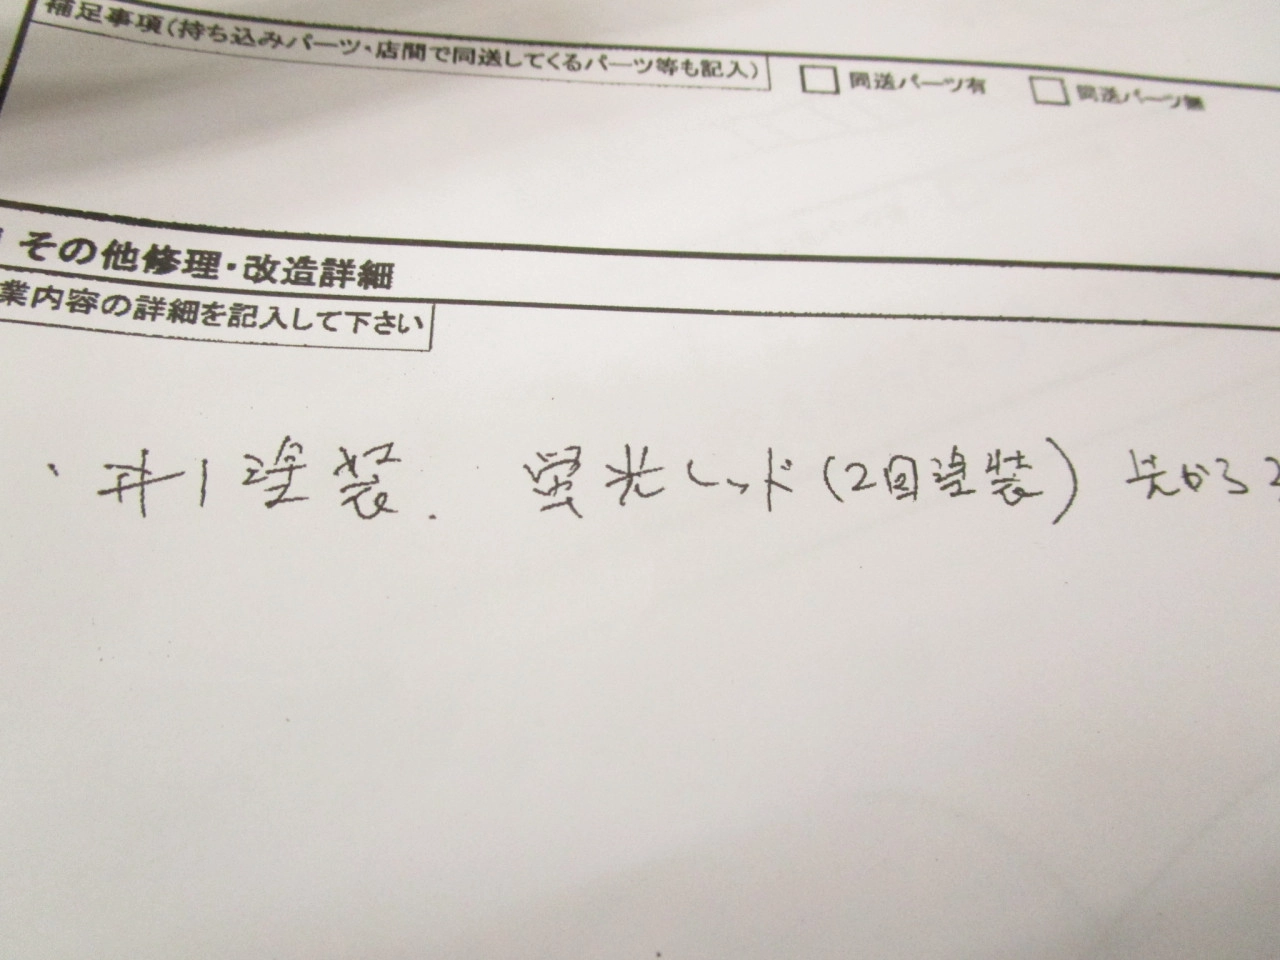 補足事項(持ち込みパーツ・店間で同送してくるパーツ等も記入) □ 同送パーツ有 □ 同送パーツ無
その他修理・改造詳細
業内容の詳細を記入して下さい
・#1塗装. 蛍光レッド(2回塗装) 先から2